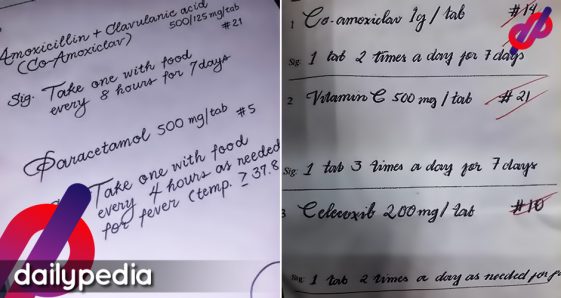 Amoxicillin + Clavulanic acid
(Co-Amoxiclav) 500/125 mg/tab
#21
Sig. Take one with food
every 8 hours for 7 days
Paracetamol 500 mg/tab #5
Take one with food
every 4 hours as needed
for fever (temp. ≥ 37.8
dailypedia
1 Co-amoxiclav 1g/tab #14
Sig. 1 tab 2 times a day for 7 days
2 Vitamin C 500 mg/tab #21
Sig. 1 tab 3 times a day for 7 days
3 Celecoxib 200 mg/tab #10
Sig. 1 tab 2 times a day as needed for